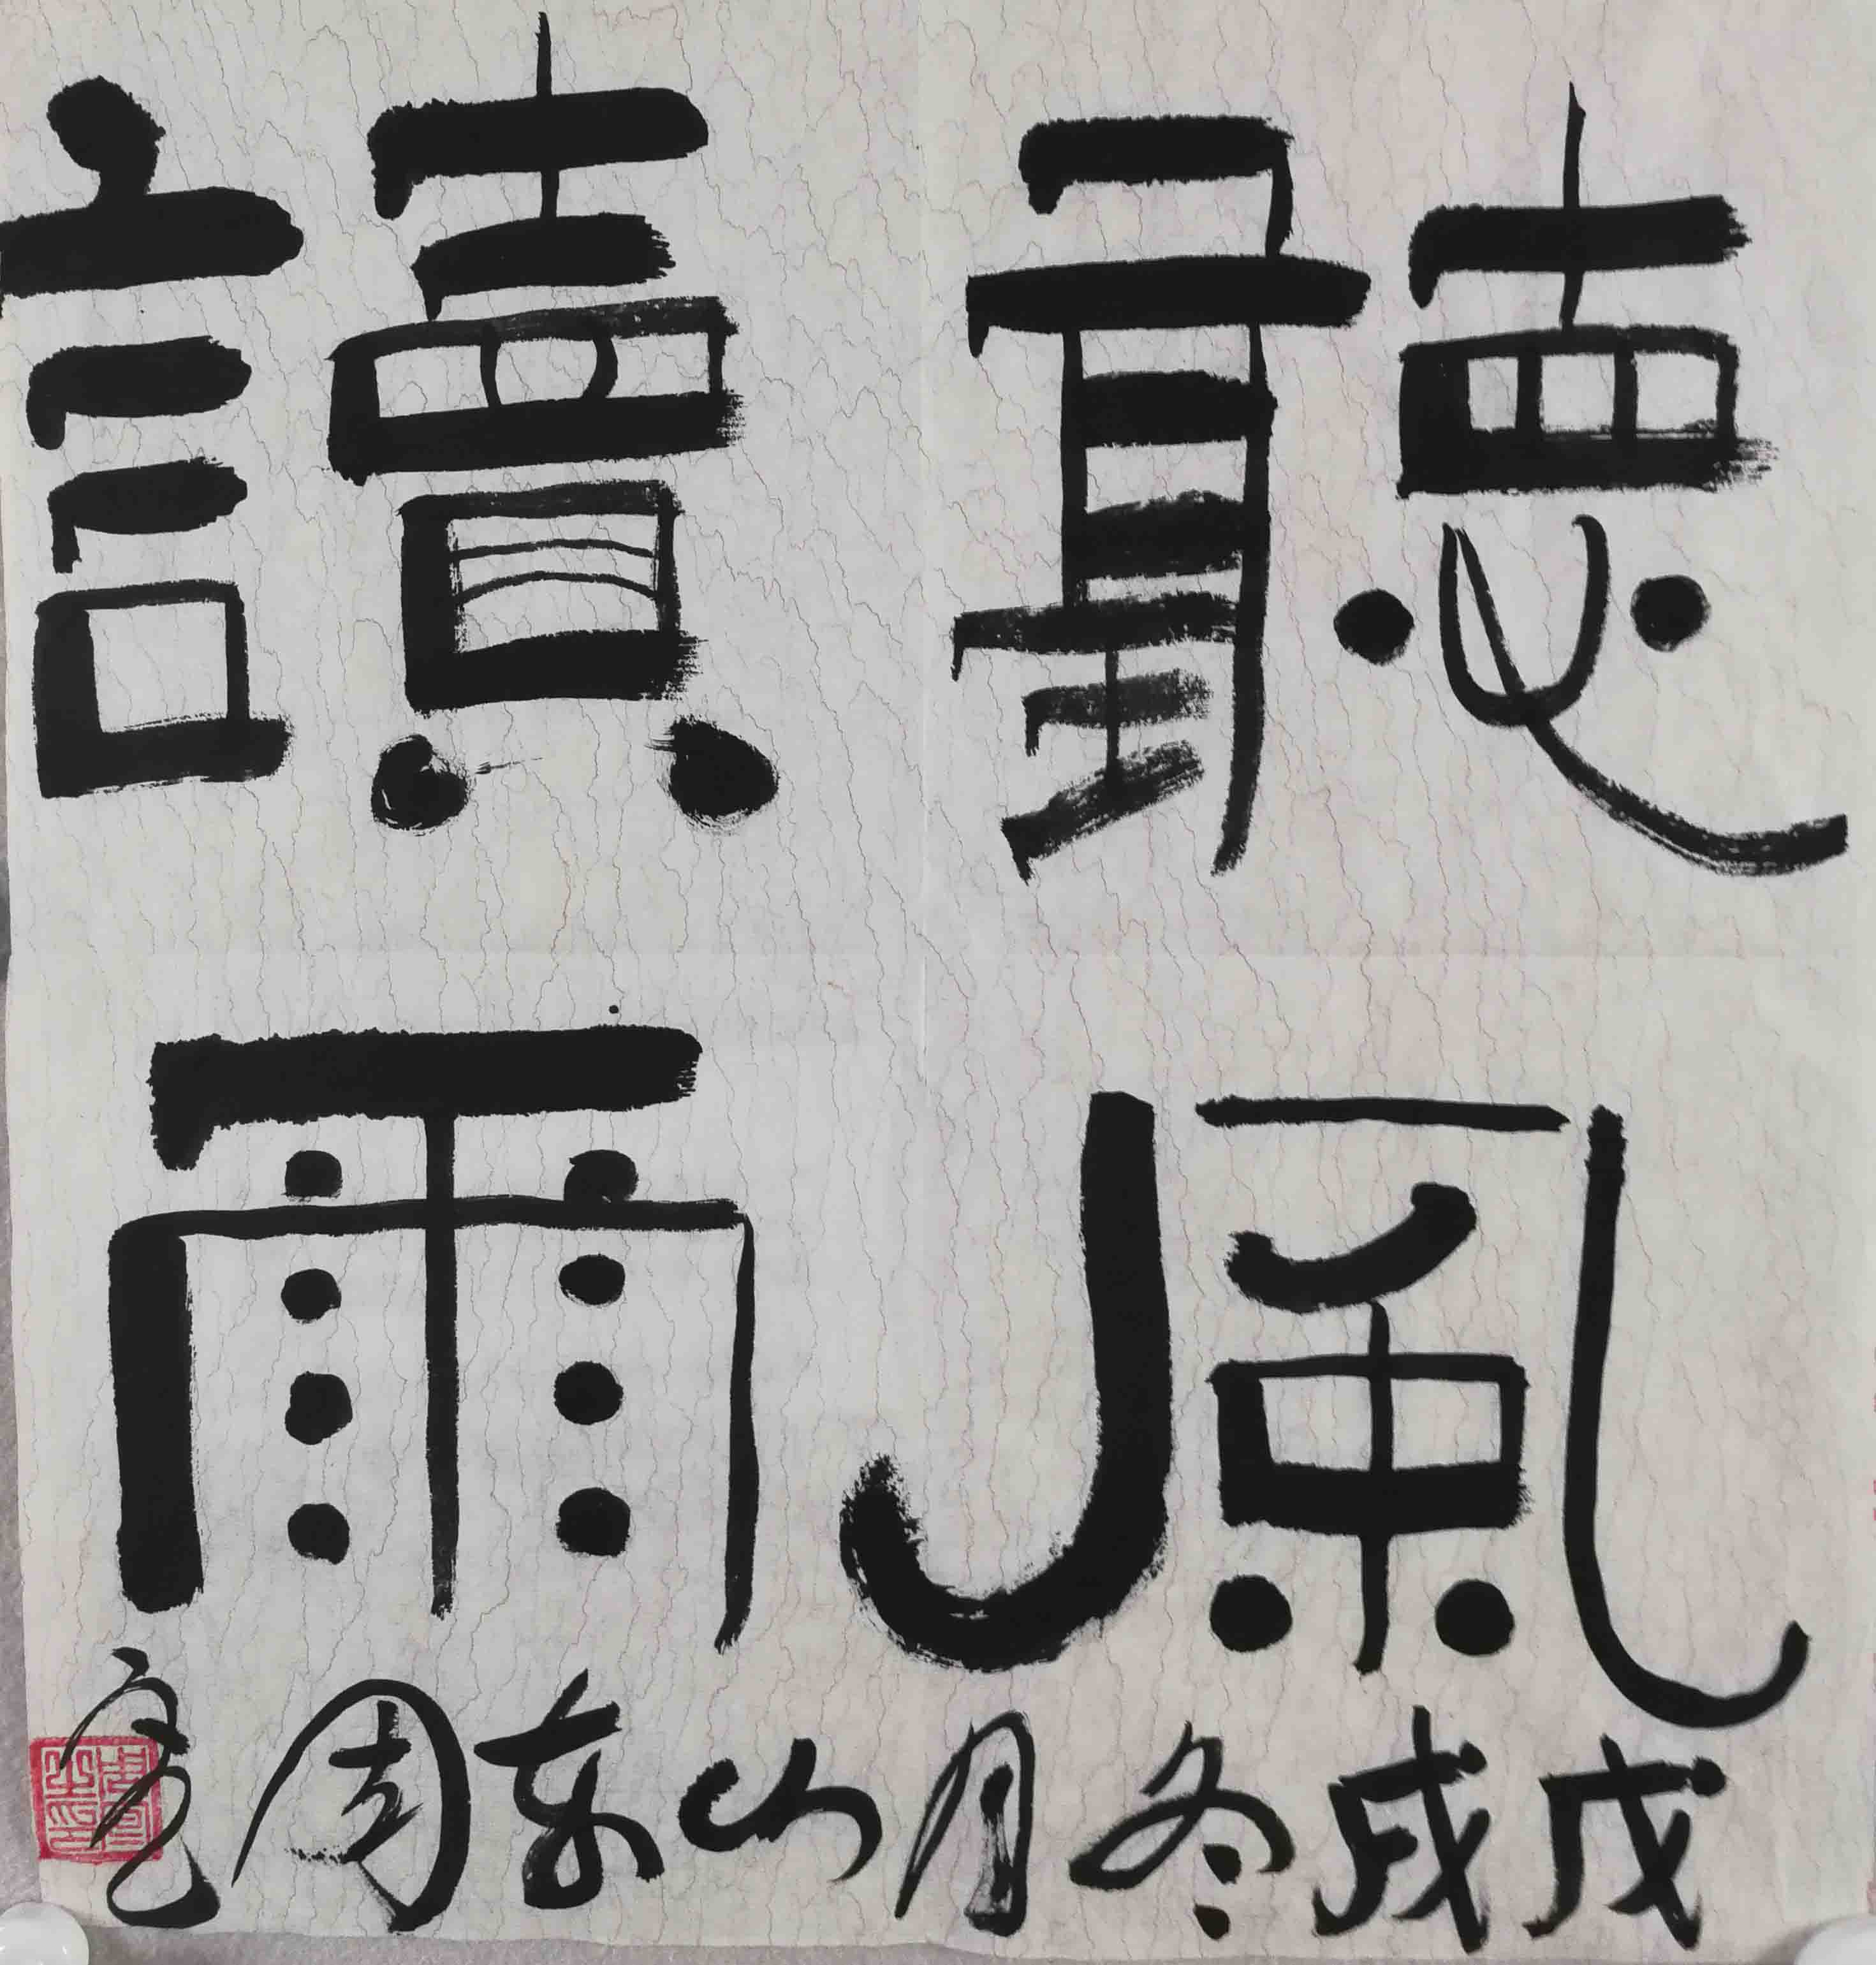 聽風
讀雨
戊戌冬月山東周